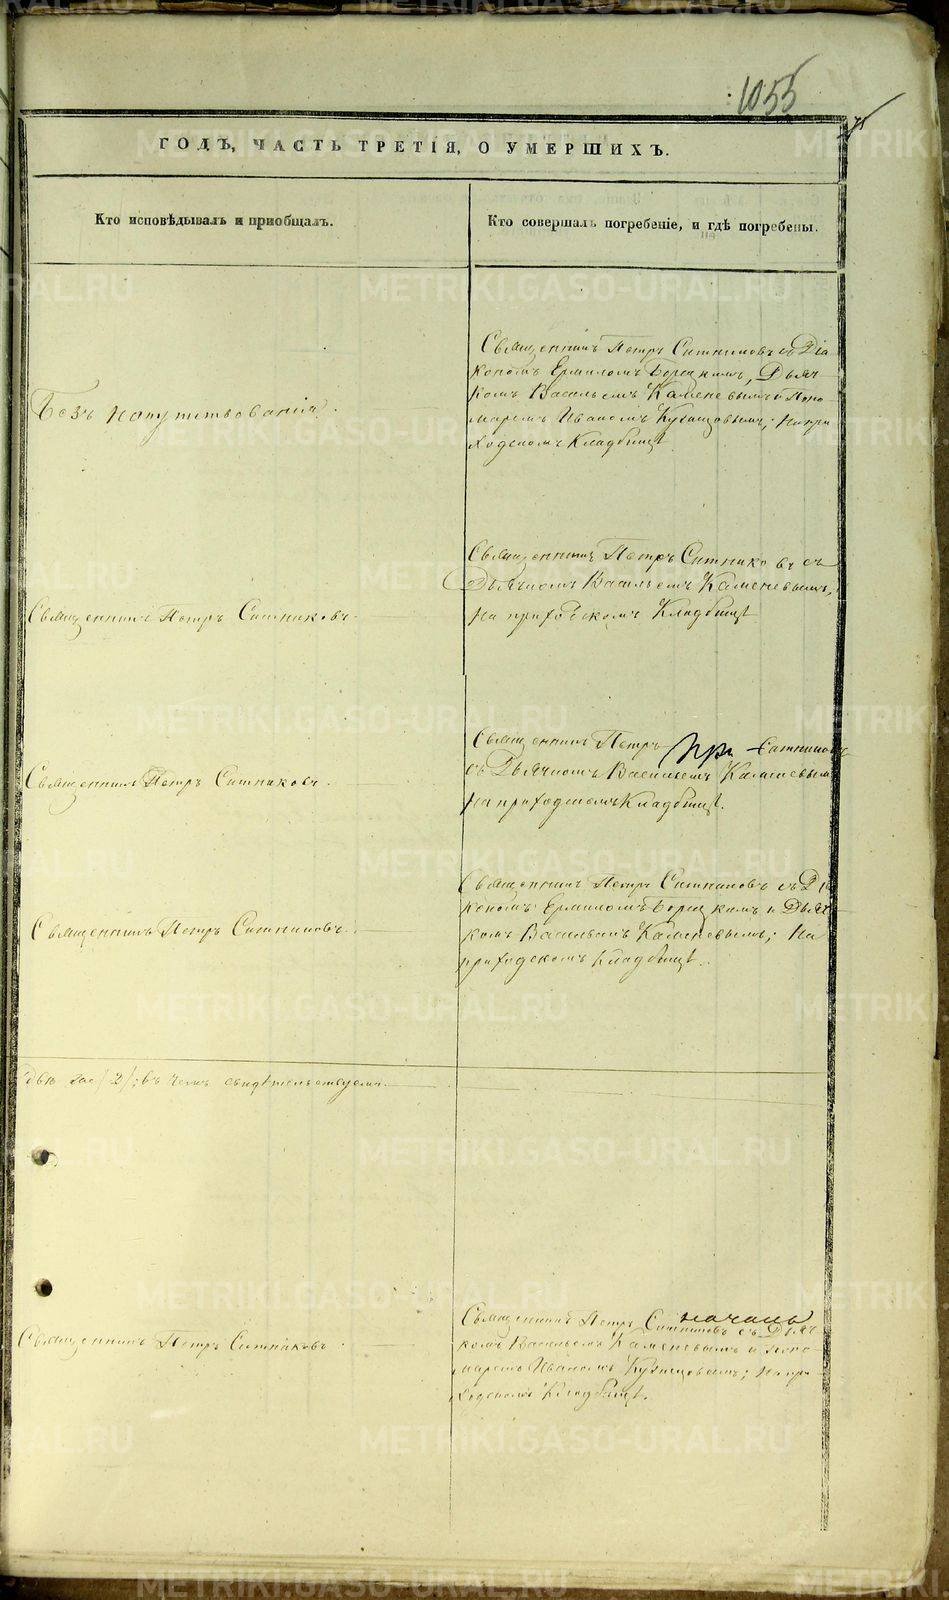 1055
75
ГОДЪ, ЧАСТЬ ТРЕТІЯ, О УМЕРШИХЪ.
Кто исповѣдывалъ и пріобщалъ.
Кто совершалъ погребеніе, и гдѣ погребены.
Безъ напутствованія.
Священникъ Петръ Ситниковъ съ Діа
кономъ Ермиломъ Борецкимъ, Дьяч
комъ Васильемъ Каменевымъ и Поно
маремъ Иваномъ Кузнецовымъ; На при
ходскомъ Кладбищѣ
Священникъ Петръ Ситниковъ.
Священникъ Петръ Ситниковъ съ
Дьячкомъ Васильемъ Каменевымъ,
на приходскомъ Кладбищѣ
Священникъ Петръ Ситниковъ.
Священникъ Петръ Ситниковъ
съ Дьячкомъ Васильемъ Каменевымъ
На приходскомъ Кладбищѣ.
Священникъ Петръ Ситниковъ.
Священникъ Петръ Ситниковъ съ Діа
кономъ Ермиломъ Борецкимъ и Дьяч
комъ Васильемъ Каменевымъ; На
приходскомъ Кладбищѣ.
двѣ /2/; въ чемъ свидѣтельствуемъ.
Священникъ Петръ Ситниковъ.
начаны
Священникъ Петръ Ситниковъ съ Дьяч
комъ Васильемъ Каменевымъ и Поно
маремъ Иваномъ Кузнецовымъ; На при
ходскомъ Кладбищѣ.
METRIKI.GASO-URAL.RU